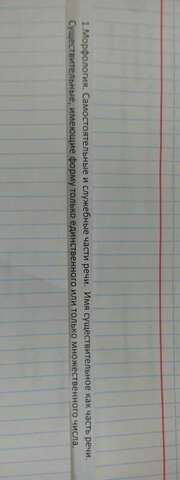 1.Морфология. Самостоятельные и служебные части речи. Имя существительное как часть речи.
Существительные, имеющие форму только единственного или только множественного числа.